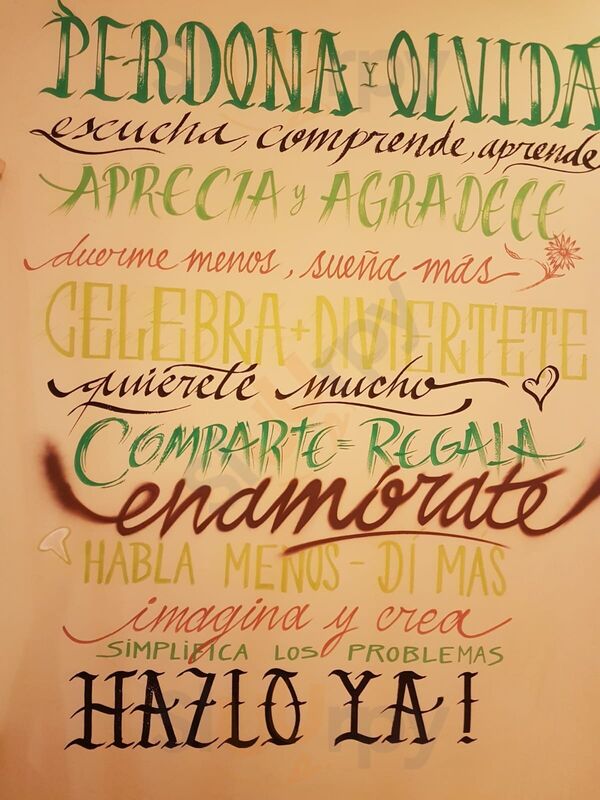 PERDONA Y OLVIDA
escucha, comprende, aprende
APRECIA y AGRADECE
duerme menos, sueña más
CELEBRA + DIVIERTETE
quiérete mucho
COMPARTE = REGALA
enamórate
HABLA MENOS - DÍ MÁS
imagina y crea
SIMPLIFICA LOS PROBLEMAS
HAZLO YA!